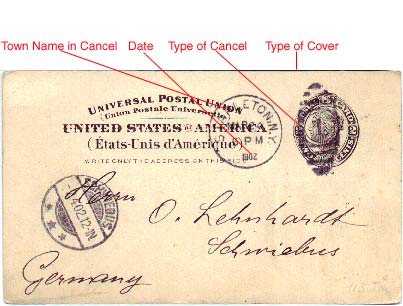 Town Name in Cancel Date Type of Cancel Type of Cover
UNIVERSAL POSTAL UNION
(Union Postale Universelle)
UNITED STATES OF AMERICA.
(États-Unis d'Amérique)
WRITE ONLY THE ADDRESS ON THIS SIDE
ETON, N.Y.
PM
1902
SCHWIEBUS
4.02.12-1N
Herrn
O. Lehnhardt
Schwiebus
Germany